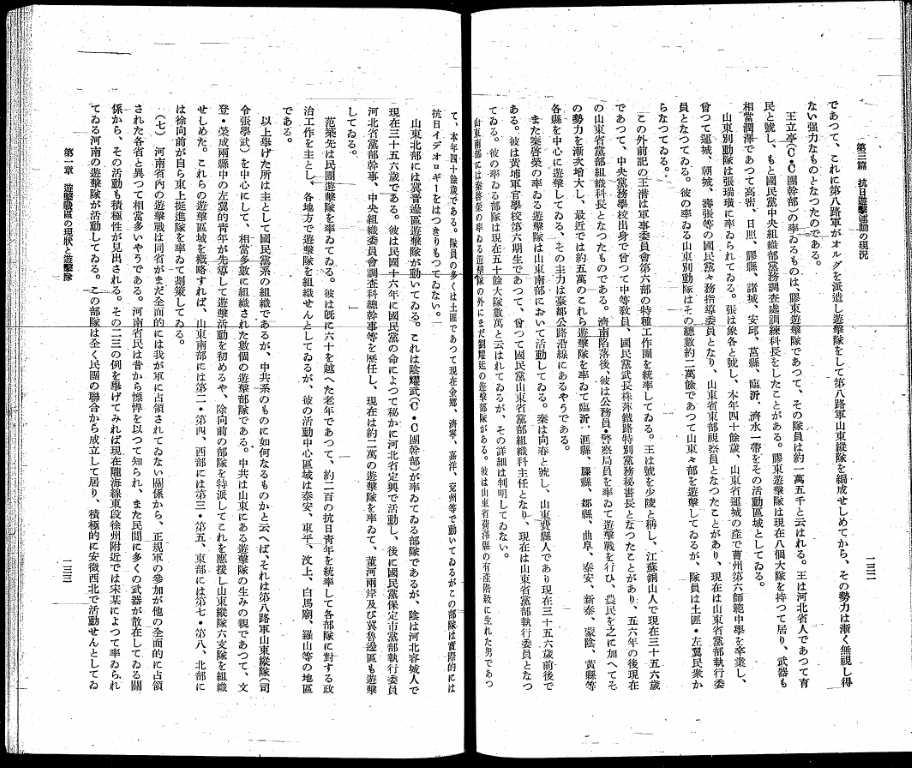 第三篇　抗日遊擊運動の現況
一三二
であつて、これに第八路軍がオルグを派遣し遊擊隊をして第八路軍山東縱隊を編成せしめてから、その勢力は漸く無視し得
ない强力なものとなつたのである。
王立亭（C・C團幹部）の率ゐるものは、膠東遊擊隊であつて、その隊員は約一萬五千と云はれる。王は河北省人であつて育
民と號し、もと國民黨中央組織部黨務調查處訓練科長をしたことがある。膠東遊擊隊は現在八個大隊を持つて居り、武器も
相當潤澤であつて高密、日照、膠縣、諸城、安邱、莒縣、臨沂、濟水一帶をその活動區域としてゐる。
山東別動隊は張瑞璜に率ゐられてゐる。張は象各と號し、本年四十餘歲、山東省運城の產で曹州第六師範中學を卒業し、
曾つて運城、朝城、壽張等の國民黨々務指導委員となり、山東省東部視察員となつたことがあり、現在は山東省黨部執行委
員となつてゐる。彼の率ゐる山東別動隊はその總數約二萬餘であつて山東々部を遊擊してゐるが、隊員は土匪・左翼民衆か
らなつてゐる。
この外前記の王滸は軍事委員會第六部の特種工作團を統率してゐる。王は號を少陵と稱し、江蘇銅山人で現在三十五六歲
であつて、中央黨務學校出身で曾つて中等敎員、國民黨武長株萍鐵路特別黨務祕書長となつたことがあり、五六年の後現在
の山東省黨部組織科長となつたものである。濟南陷落後、彼は公務員・警察局員を率ゐて遊擊戰を行ひ、農民を之に加へてそ
の勢力を漸次增大し、最近では約五萬のこれら遊擊隊を率ゐて臨沂、滙縣、滕縣、鄒縣、曲阜、泰安、新泰、蒙陰、黃縣等
各縣を中心に遊擊してゐる、その主力は臺鄒公路沿線にあるやうである。
また秦啓榮の率ゐる遊擊隊は山東南部において活動してゐる。秦は向春と號し、山東費縣人であり現在三十五六歲前後で
ある。彼は黃埔軍官學校第六期生であつて、曾つて國民黨山東省黨部組織科主任となり、現在は山東省黨部執行委員となつ
てゐる。彼の率ゐる部隊は現在五十餘大隊數萬と云はれてゐるが、その詳細は判明してゐない。
山東南部には秦啓榮の率ゐる遊擊隊の外にまだ劉耀廷の遊擊部隊がある。彼は山東省荷澤縣の有產階級に生れた男であつ
て、本年四十餘歲である。隊員の多くは土匪であつて現在金鄕、濟寧、嘉洋、兗州等で動いてゐるがこの部隊は實際的には
抗日イデオロギーをはつきりもつてゐない。
山東北部には冀晋邊區遊擊隊が動いてゐる。これは陰耀武（C・C團幹部）が率ゐてゐる部隊であるが、陰は河北容城人で
現在三十五六歲である。彼は民國十六年に國民黨の命によつて秘かに河北省定興で活動し、後に國民黨保定市黨部執行委員
河北省黨部幹事、中央組織委員會調査科總幹事等を歷任し、現在は約二萬の遊擊隊を率ゐて、董河兩岸及び冀魯邊區も遊擊
してゐる。
范築先は民團遊擊隊を率ゐてゐる。彼は旣に六十を越へた老年であつて、約二百の抗日靑年を統率して各部隊に對する政
治工作を主とし、各地方で遊擊隊を組織せんとしてゐるが、彼の活動中心區域は泰安、東平、汶上、白馬廟、羅山等の地區
である。
以上擧げた所は主として國民黨系の組織であるが、中共系のものに如何なるものかと云へば、それは第八路軍山東縱隊（司
令張學武）を中心にして、相當多數に組織された數個の遊擊部隊である。中共は山東にある遊擊隊の生みの親であつて、文
登・榮成兩縣中の左翼的靑年が先導して遊擊活動を初めるや、除向前の部隊を特派してこれを應援し山東縱隊六支隊を組織
せしめた。これらの遊擊區域を概略すれば、山東南部には第二・第四、西部には第三・第五、東部には第七・第八、北部に
は徐向前が自ら東上挺進隊を率ゐて劃策してゐる。
（七）　河南省內の遊擊戰は同省がまだ全面的には我が軍に占領されてゐない關係から、正規軍の參加が他の全面的に占領
された各省と異つて相當多いやうである。河南省民は昔から慓悍を以つて知られ、また民間に多くの武器が散在してゐる關
係から、その活動も積極性が見出される。その二三の例を擧げてみれば現在隴海線東段徐州附近では宋某によつて率ゐられ
てゐる河南の遊擊隊が活動してゐる。この部隊は全く民團の聯合から成立して居り、積極的に安徽西北で活動せんとしてゐ
第一章　遊擊戰區の現狀と遊擊隊
一三三